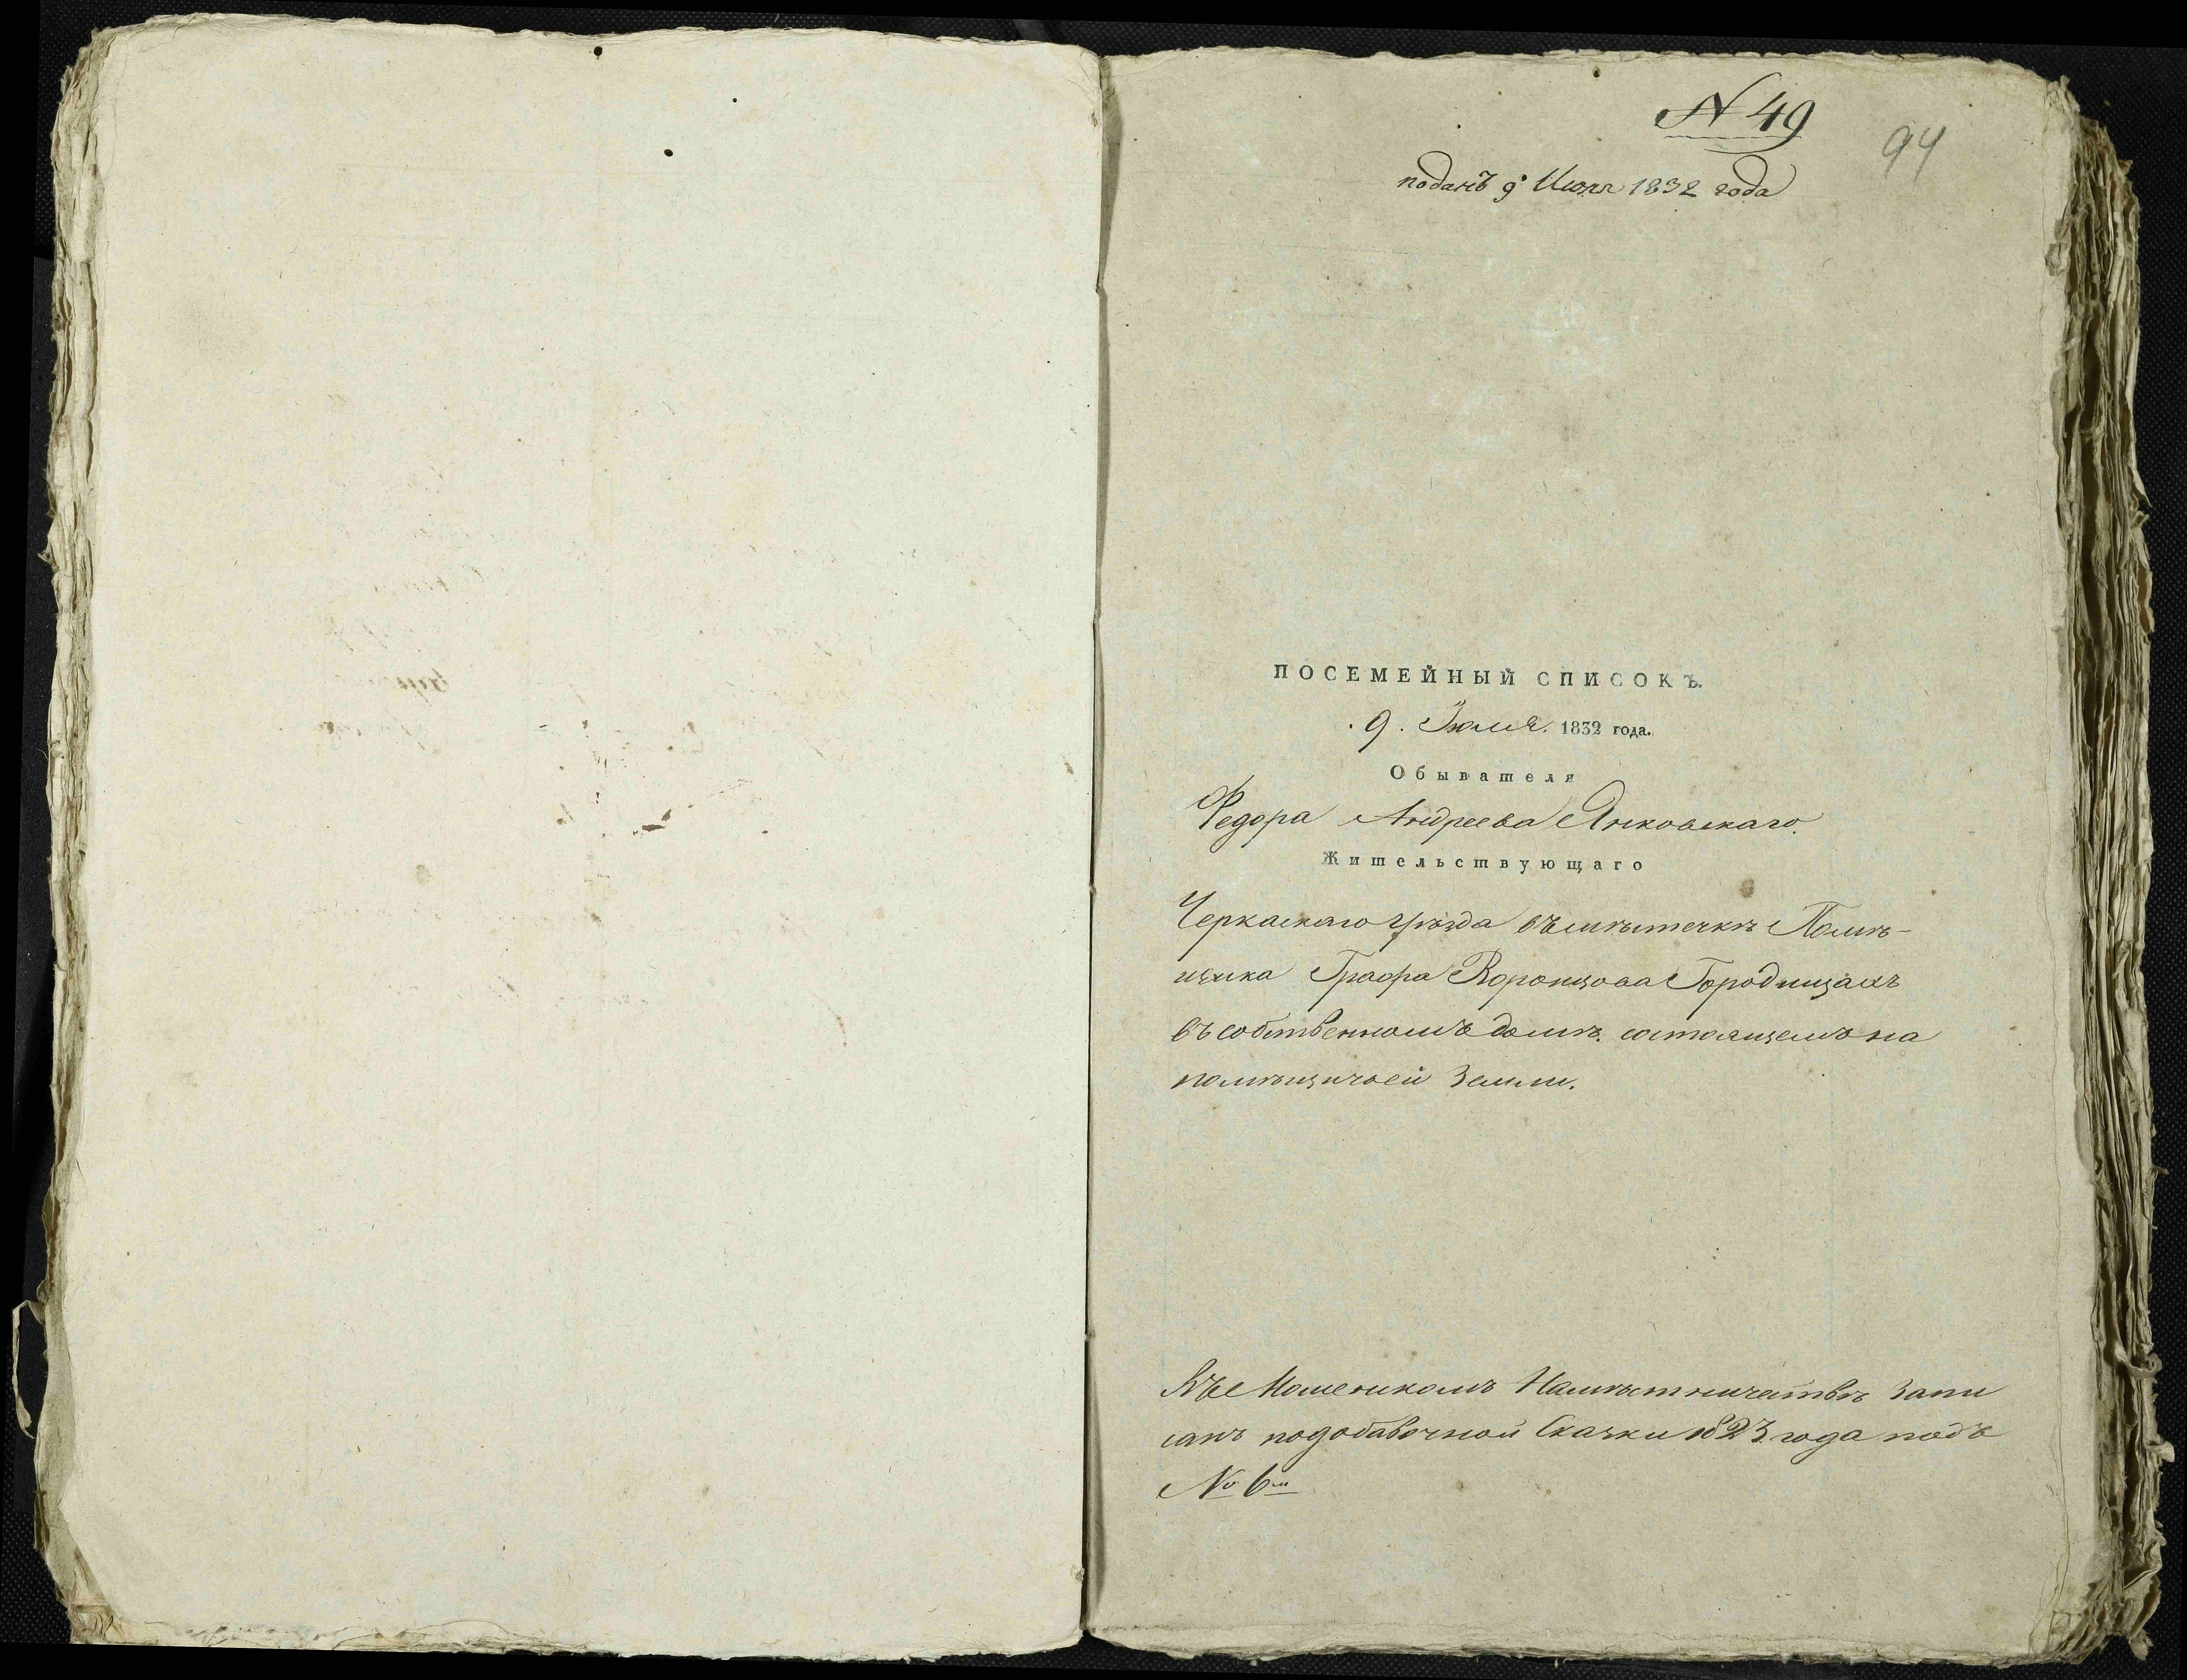 N 49
94
поданъ 9 Июля 1832 года
ПОСЕМЕЙНЫЙ СПИСОКЪ.
9. Июля. 1832 года.
Обывателя
Федора Андреева Янковскаго.
Жительствующаго
Черкаскаго уѣзда въ мѣстечкѣ Помѣ-
щика Графа Воронцова Городищахъ
въ собственномъ домѣ. состоящемъ на
помѣщичьей Земли.
Намѣстничествѣ Запи
санъ по добавочной Сказки 1823 года подъ
№ 6м